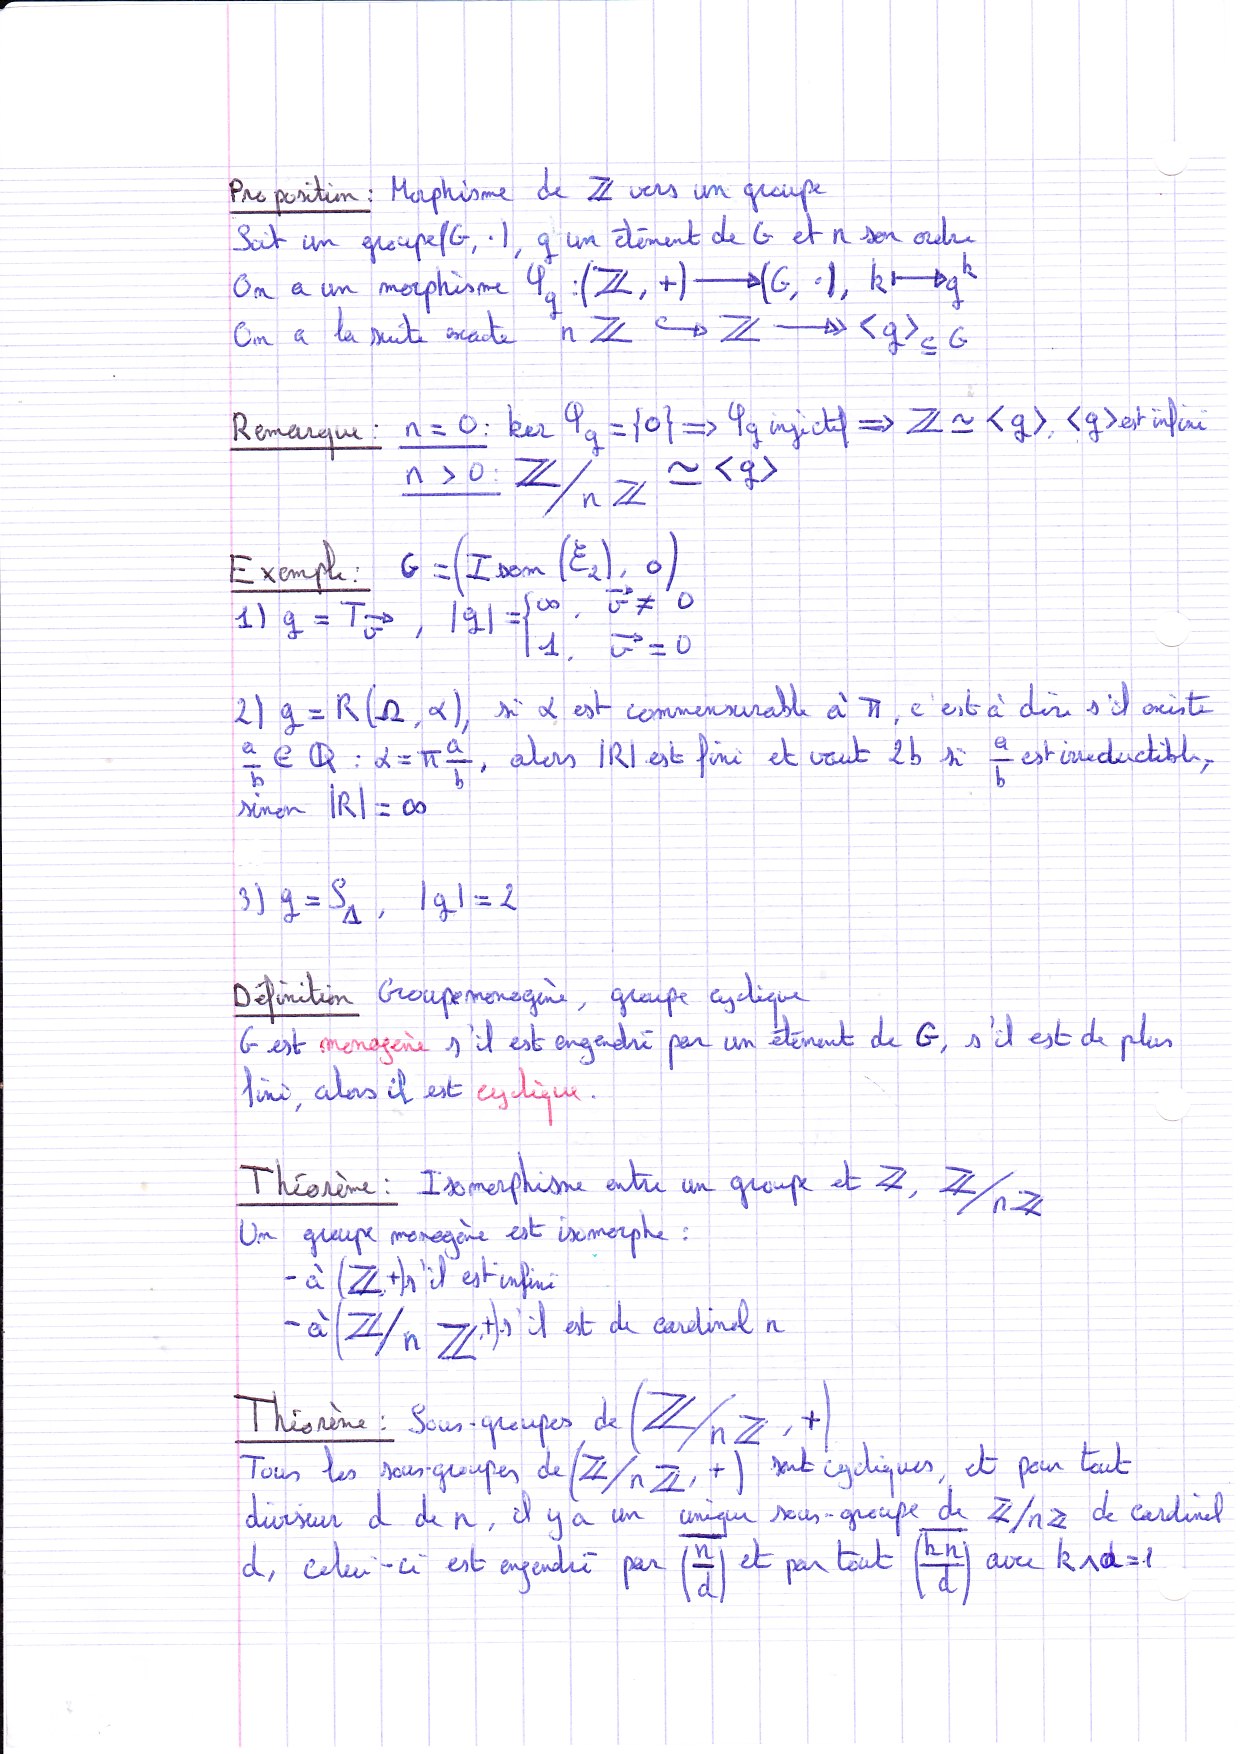 Proposition : Morphisme de ℤ vers un groupe
Soit un groupe (G, ·), g un élément de G et n son ordre
On a un morphisme φ_g : (ℤ, +) ⟶ (G, ·), k ⟼ g^k
On a la suite exacte n ℤ ↪ ℤ ↠ <g> ⊆ G
Remarque : n = 0 : ker φ_g = {0} ⇒ φ_g injectif ⇒ ℤ ≃ <g>, <g> est infini
n > 0 : ℤ/nℤ ≃ <g>
Exemple : G = (Isom (ξ_2), o)
1) g = T_v⃗ , |g| = { ∞, v⃗ ≠ 0
1, v⃗ = 0
2) g = R(Ω, α), si α est commensurable à π, c'est à dire s'il existe
a/b ∈ ℚ : α = π a/b, alors |R| est fini et vaut 2b si a/b est irreductible,
sinon |R| = ∞
3) g = S_Δ, |g| = 2
Définition Groupe monogène, groupe cyclique
G est monogène s'il est engendré par un élément de G, s'il est de plus
fini, alors il est cyclique.
Théorème : Isomorphisme entre un groupe et ℤ, ℤ/nℤ
Un groupe monogène est isomorphe :
- à (ℤ, +) s'il est infini
- à (ℤ/nℤ, +) s'il est de cardinal n
Théorème : Sous-groupes de (ℤ/nℤ, +)
Tous les sous-groupes de (ℤ/nℤ, +) sont cycliques, et pour tout
diviseur d de n, il y a un unique sous-groupe de ℤ/nℤ de cardinal
d, celui-ci est engendré par \overline{(n/d)} et par tout \overline{(kn/d)} avec k ∧ d = 1